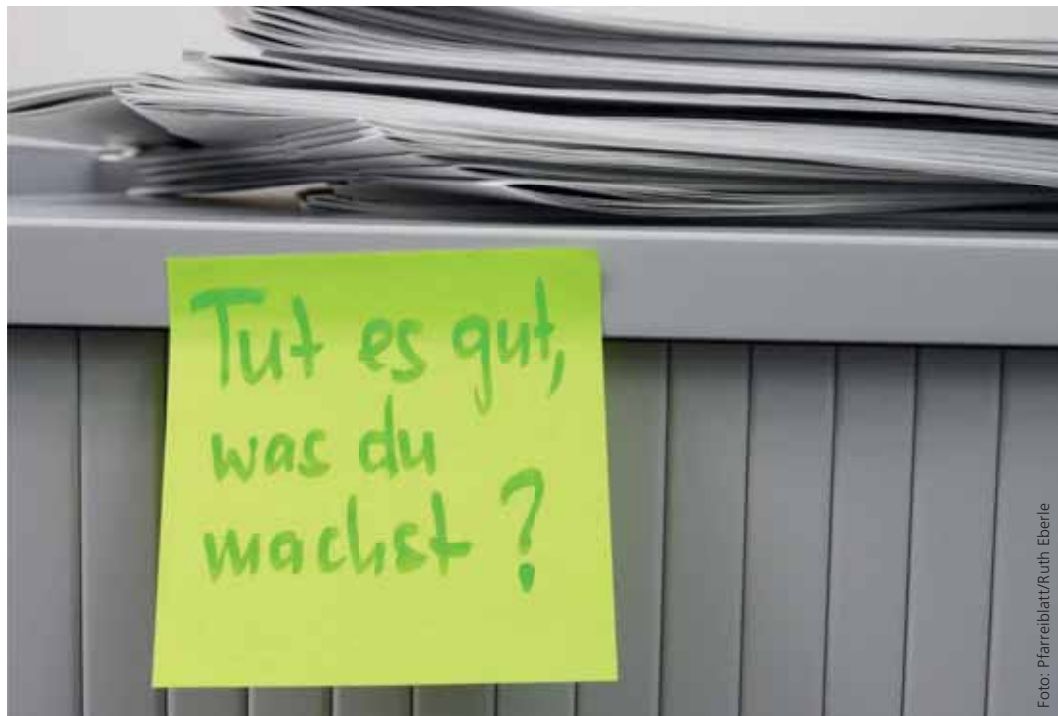 Tut es gut,
was du
machst ?
Foto: Pfarreiblatt/Ruth Eberle